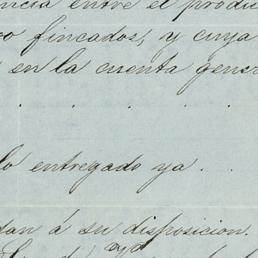 ncia entre el produ
o fincados, y cuya
en la cuenta gener
. . . . .
lo entregado ya . .
dan á su disposicion.